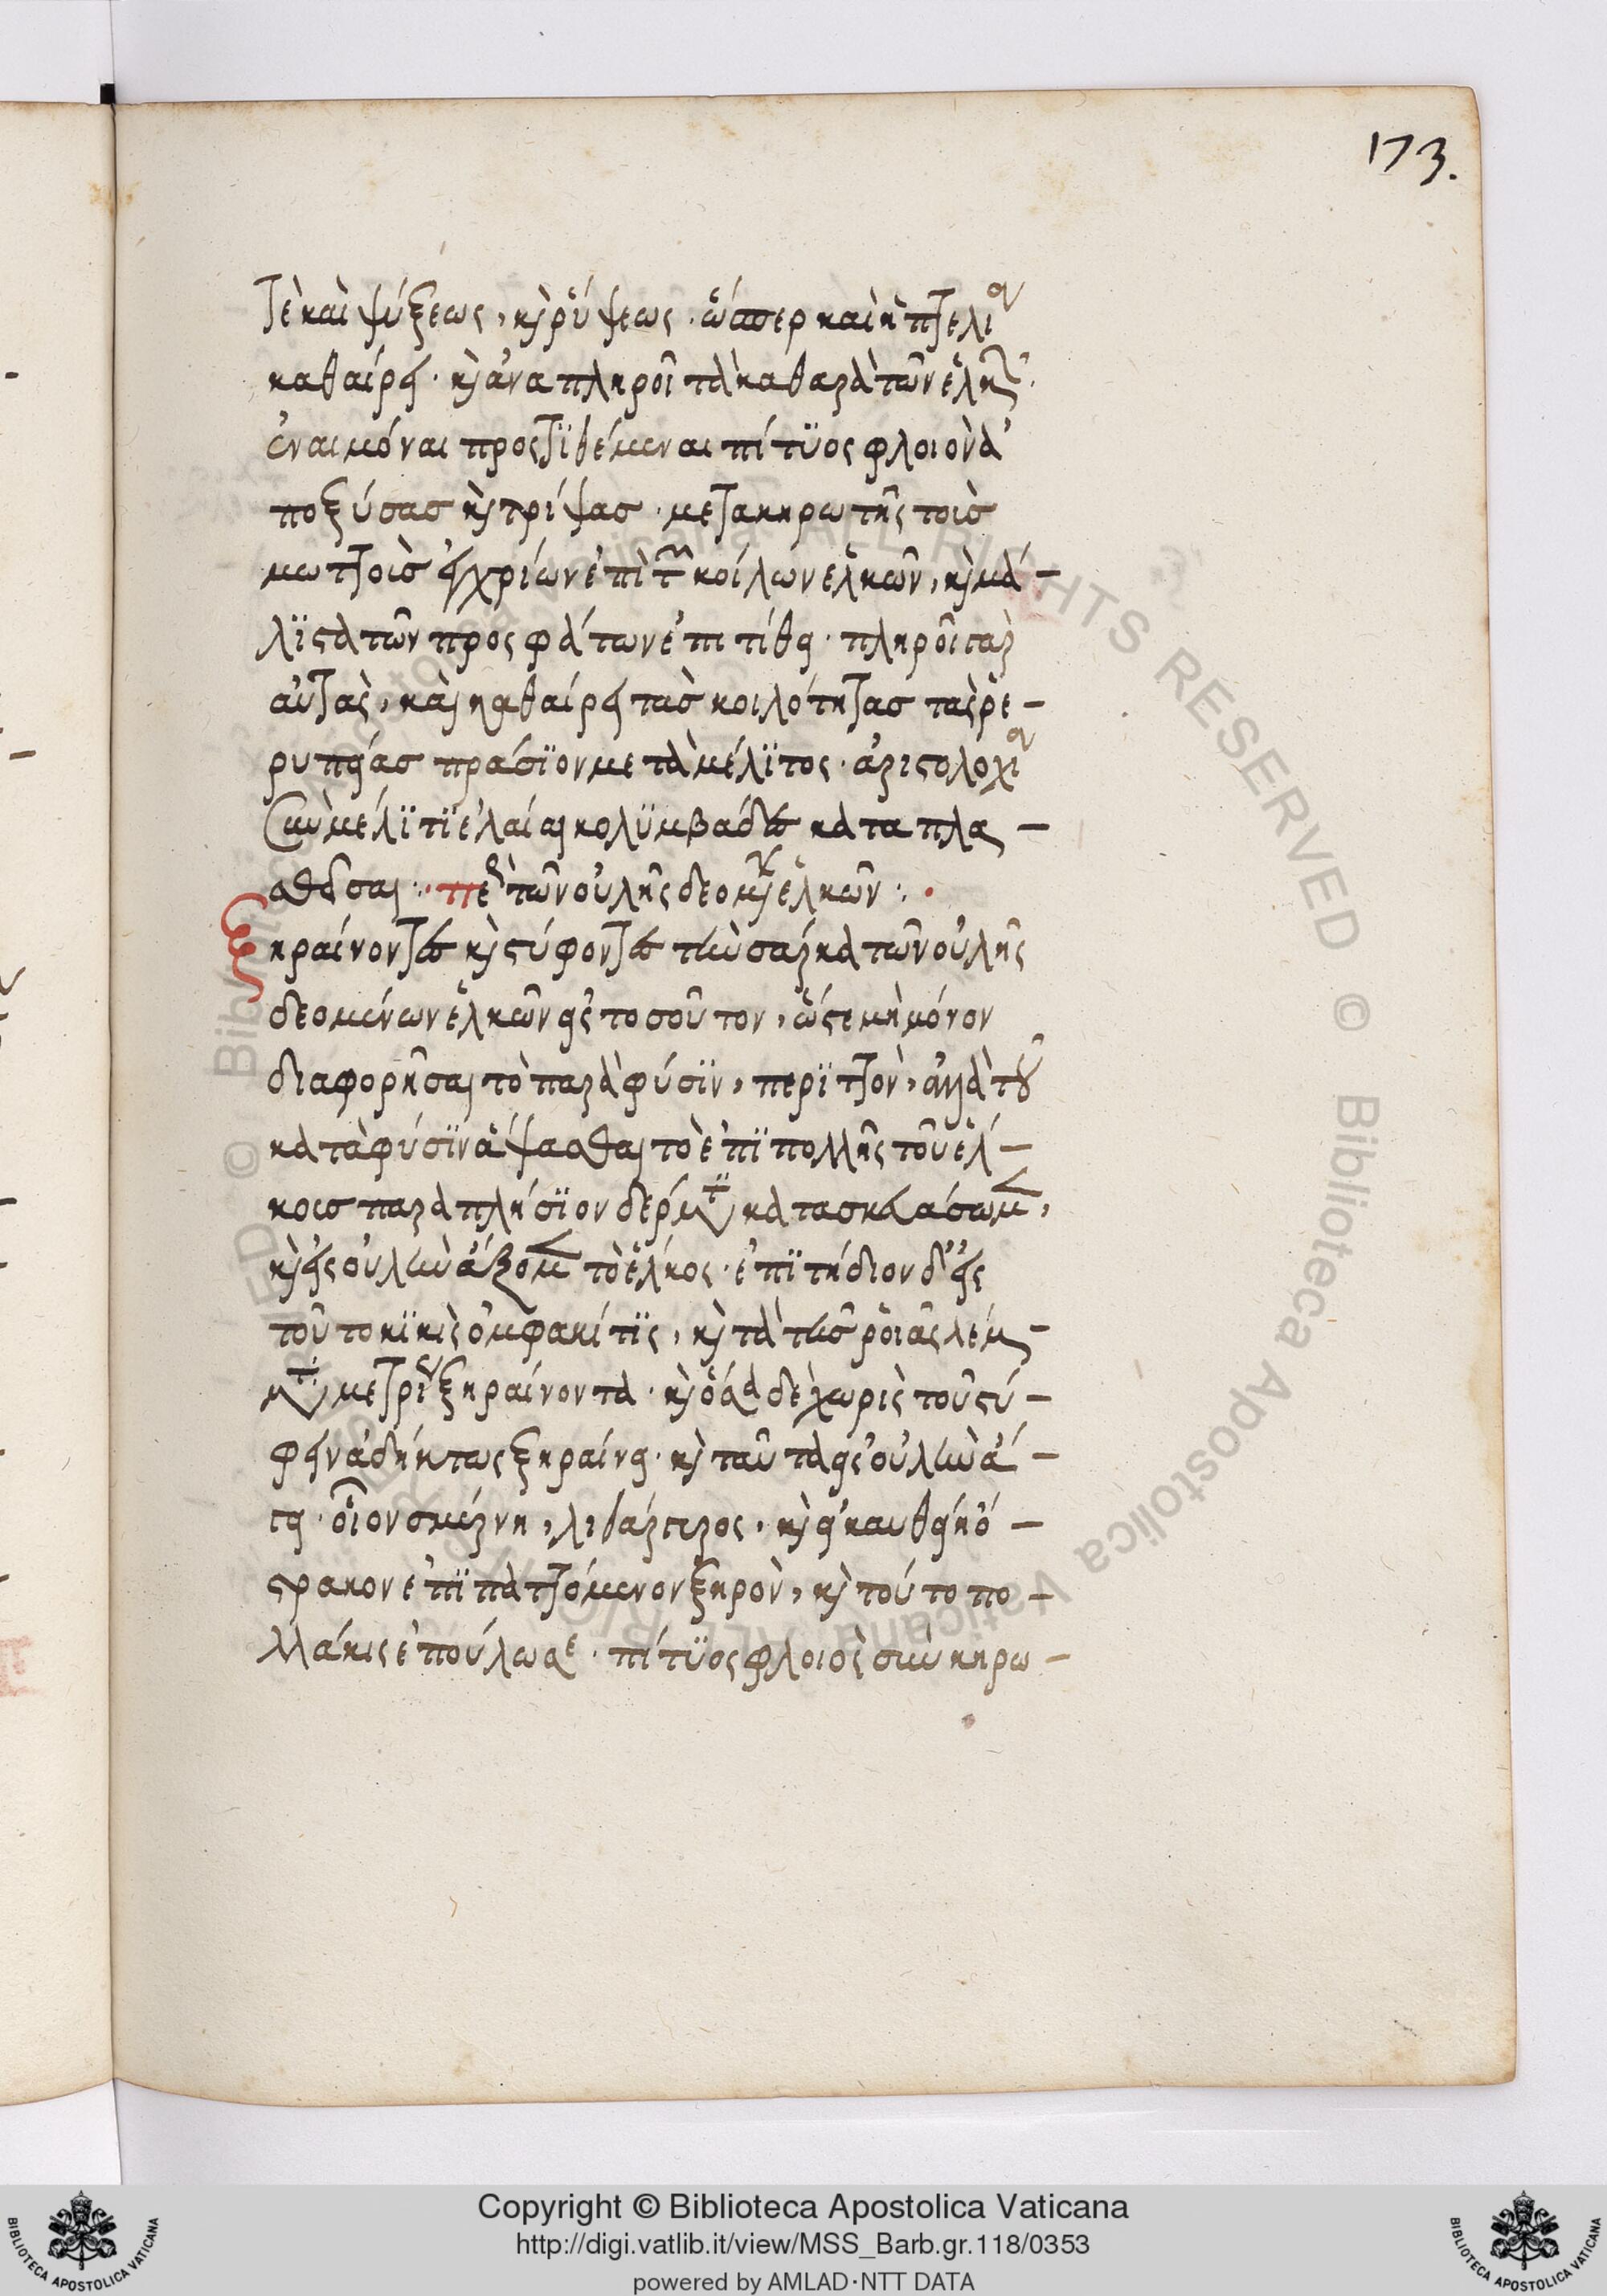 173.
τὲ καὶ ψύξεως, κὶ ῥύψεως. ὥσπερ καὶ ἡ πτελέα
καθαίρει. κὶ ἀναπληροῖ τὰ καθαρὰ τῶν ἑλκῶν.
ἔναιμόν αι προστϊθέμεναι πίτϋος φλοιὸν ἀ
ποξύσασ κὶ τρίψασ. μετα κηρωτῆς τοῖσ
μωτοῖσ ἐγχρίων ἐπὶ τῶν κοίλων ἑλκῶν, κὶ μά-
λϊστα τῶν προσφάτων ἐπιτίθει. πληροῖ γαρ
αὐτὰς, καὶ καθαίρει τὰσ κοιλότητασ τὰς ῥε-
ρυπείασ πράσϊον μετὰ μέλϊτος. ἀριστολοχία
σὺν μέλϊτϊ ἐλαίαι κολϋμβάδες καταπλα-
σθεῖσαι :. περὶ τῶν οὐλῆς δεομένων ἑλκῶν :.
ξηραίνοντες κὶ στύφοντες τὴν σάρκα τῶν οὐλῆς
δεομένων ἑλκῶν εἰς τοσοῦτον, ὥστε μὴ μόνον
διαφορῆσαι τὸ παρὰ φύσϊν, περϊττὸν, ἀλλὰ τοῦ
κατὰ φύσϊν ἅψασθαι τὸ ἐπϊπολλῆς τοῦ ἕλ-
κους παραπλήσϊον δέρματι κατασκευάσωμεν,
κὶ εἰς οὐλὴν ἄξομεν τὸ ἕλκος. ἐπϊτήδιον δ' εἰς
τοῦτο κϊκὶς ὀμφακίτϊς, κὶ τὰ τῆς ῥοιᾶς λέμ-
ματα μετρίως ξηραίνοντα. κὶ ὅσα δὲ χωρὶς τοῦ στύ-
φειν ἀδήκτως ξηραίνει. κὶ ταῦτα εἰς οὐλὴν ἄ-
γει. οἷον σμύρνη, λιθάργυρος, κὶ εἰ καυθείη ὄ-
στρακον ἐπϊπαττόμενον ξηρὸν, κὶ τοῦτο πο-
λλάκις ἐπούλωσε. πίτϋος φλοιὸς σὺν κηρω-
Copyright © Biblioteca Apostolica Vaticana
http://digi.vatlib.it/view/MSS_Barb.gr.118/0353
powered by AMLAD·NTT DATA